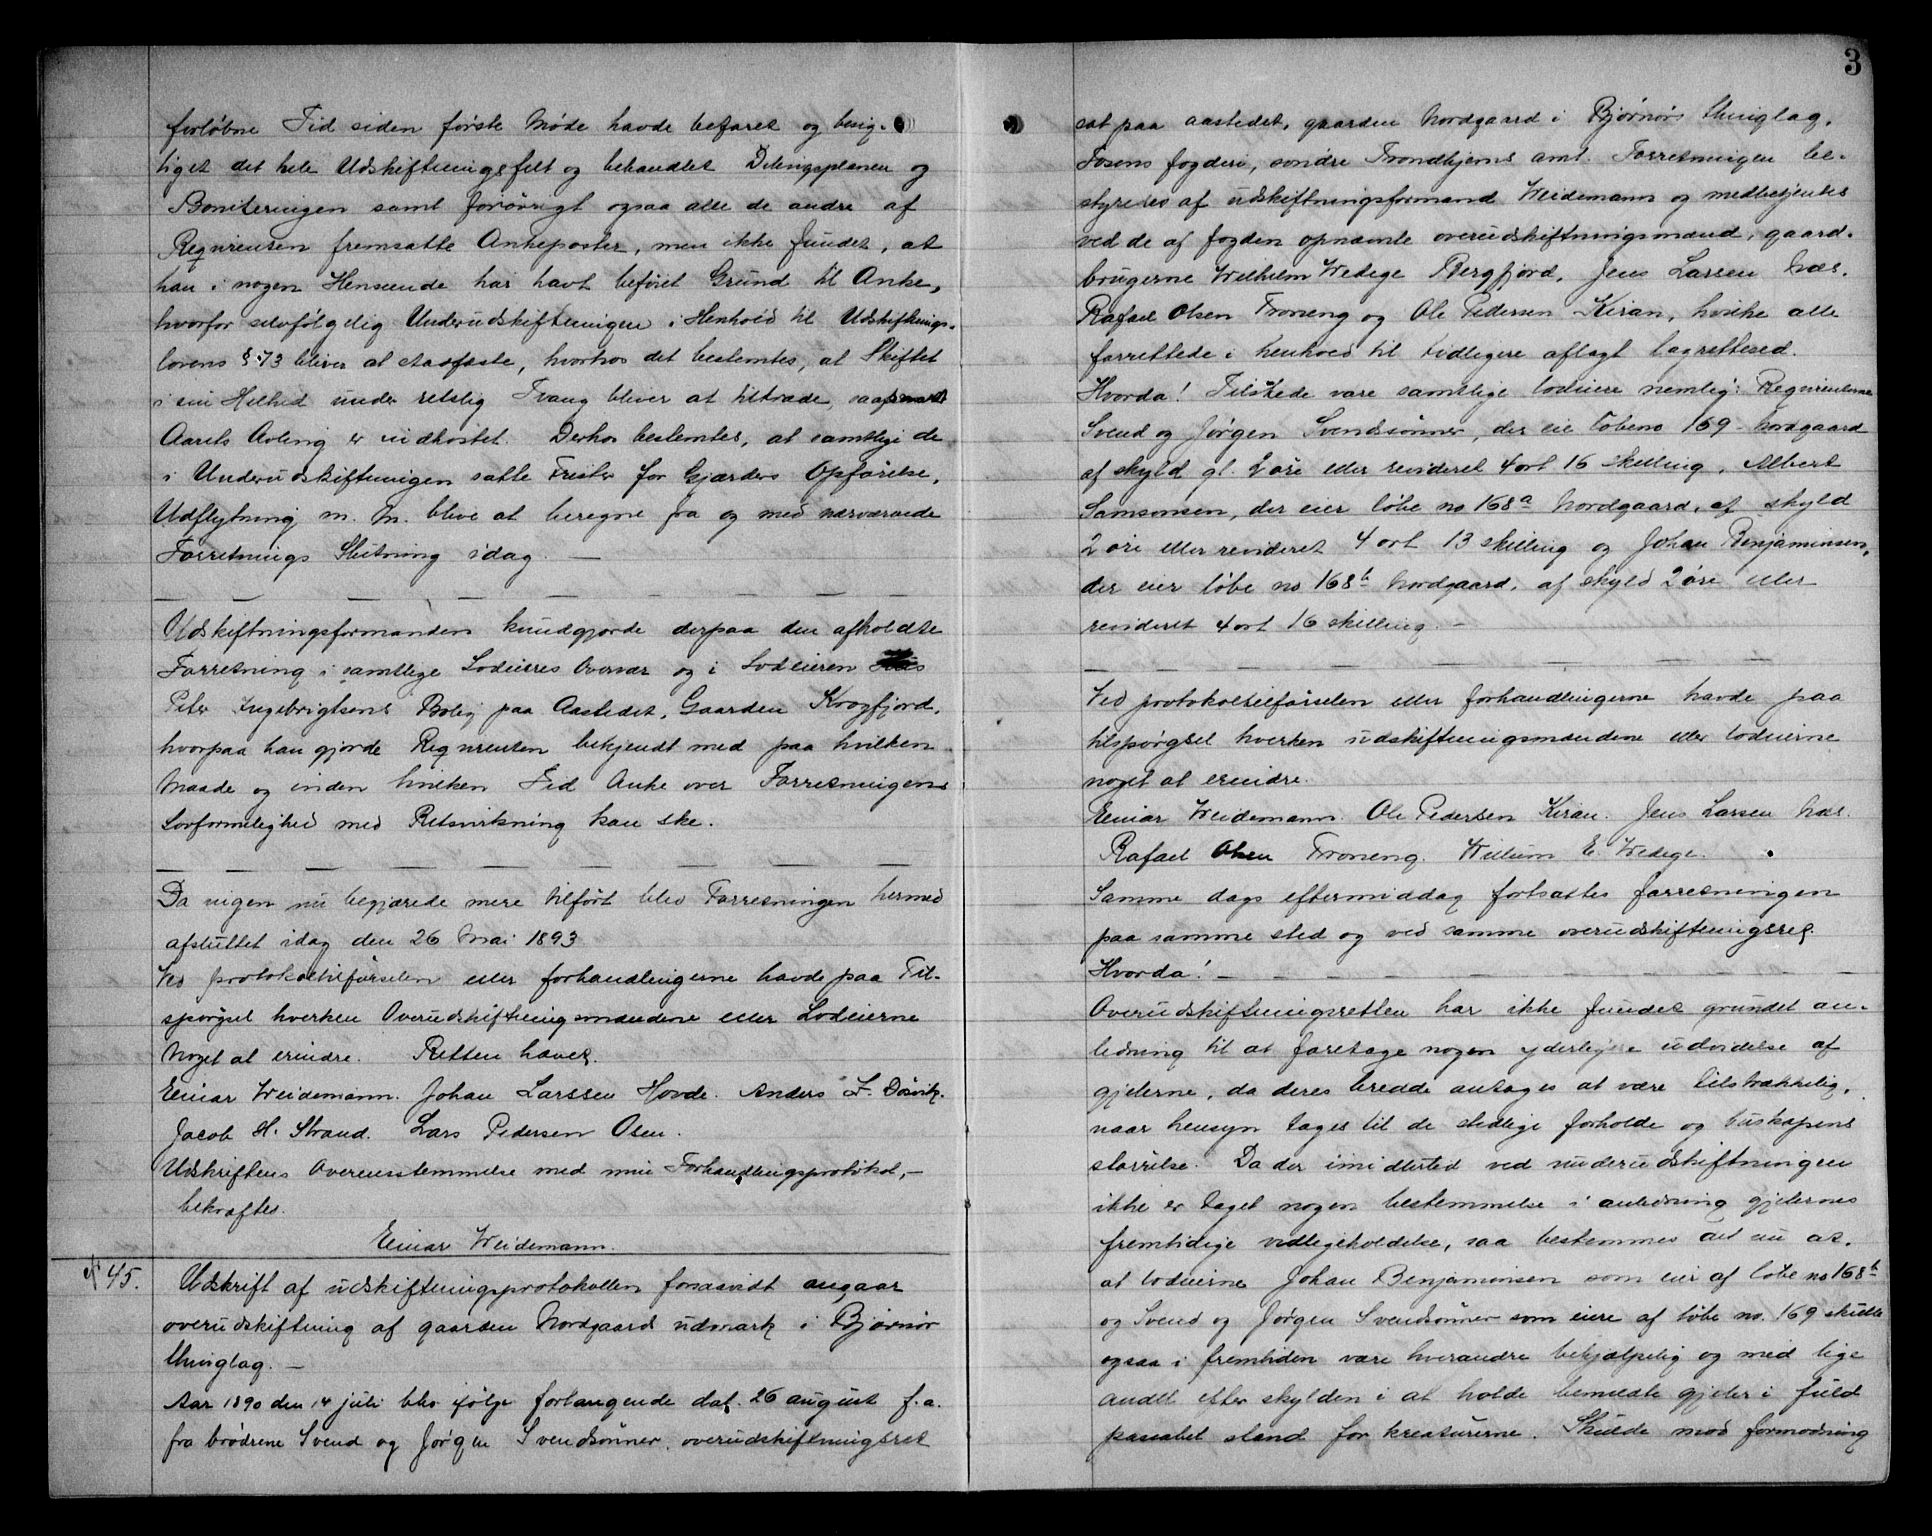 forløbne Tid siden første Møde havde befaret og besig-
tiget det hele Udskiftningsfelt og behandlet Delingsplanen og
Boniteringen samt forøvrigt ogsaa alle de andre af
Reqvirenten fremsatte Ankeposter, men ikke fundet, at
han i nogen Henseende har havt beføiet Grund til Anke,
hvorfor selvfølgelig Underudskiftningen i Henhold til Udskiftnings-
lovens § 73 bliver at stadfæste, hvorhos det bestemtes, at Skiftet
i sin Helhed under retslig Tvang bliver at tiltræde, saasnart
Aarets Avling er indhøstet. Derhos bestemtes, at samtlige de
i Underudskiftningen satte Frister for Gjærders Opførelse,
Udflytning m. m. blive at beregne fra og med nærværende
Forretnings Slutning idag. —
Udskiftningsformanden kundgjorde derpaa den afholdte
Forretning i samtlige Lodeieres Overvær og i Lodeieren
Peter Ingebrigtsens Bolig paa Aastedet, Gaarden Krogfjord,
hvorpaa han gjorde Reqvirenten bekjendt med paa hvilken
Maade og inden hvilken Tid Anke over Forretningens
Lovformelighed med Retsvirkning kan ske.
Da ingen nu begjærede mere tilført blev Forretningen hermed
afsluttet idag den 26 Mai 1893
Ved protokoltilførselen eller forhandlingerne havde paa Til-
spørgsel hverken Overudskiftningsmændene eller Lodeierne
Noget at erindre. Retten hævet.
Einar Weidemann. Johan Larssen Hovde. Anders F. Døsvik.
Jacob H. Strand. Lars Pedersen Osen.
Udskriftens Overensstemmelse med min Forhandlingsprotokol, —
bekræftes.
Einar Weidemann.
№ 45. Udskrift af udskiftningsprotokollen forsaavidt angaar
overudskiftning af gaarden Nordgaard udmark i Bjørnør
thinglag. —
Aar 1890 den 14 juli blev ifølge forlangende dat. 26 august f. a.
fra brødrene Svend og Jørgen Svendsønner, overudskiftningsret
3
sat paa aastedet, gaarden Nordgaard i Bjørnørs thinglag,
Fosens fogderi, søndre Trondhjems amt. Forretningen be-
styredes af udskiftningsformand Weidemann og medbetjentes
ved de af fogden opnævnte overudskiftningsmænd, gaard-
brugerne Wilhelm Wedege Bergfjord, Jens Larsen Næs,
Rafael Olsen Troneng og Ole Pedersen Kiran, hvilke alle
forrettede i henhold til tidligere aflagt lagrettesed.
Hvorda! Tilstede vare samtlige lodeiere nemlig: Reqvirenterne
Svend og Jørgen Svendsønner, der eie løbeno 169 Nordgaard
af skyld gl. 2 øre eller revideret 4 ort 16 skilling, Albert
Samsonsen, der eier løbe no 168a Nordgaard, af skyld
2 øre eller revideret 4 ort 13 skilling og Johan Benjaminsen,
der eier løbe no 168b Nordgaard, af skyld 2 øre eller
revideret 4 ort 16 skilling. —
Ved protokoltilførselen eller forhandlingerne havde paa
tilspørgsel hverken udskiftningsmændene eller lodeierne
noget at erindre.
Einar Weidemann. Ole Pedersen Kiran. Jens Larsen Næs.
Rafael Olsen Troneng. Willum E. Wedege.
Samme dags eftermiddag fortsattes forretningen
paa samme sted og ved samme overudskiftningsret.
Hvorda! —
Overudskiftningsretten har ikke fundet grundet an-
ledning til at foretage nogen yderligere udvidelse af
gjeterne, da deres bredde antages at være tilstrækkelig,
naar hensyn tages til de stedlige forholde og buskapens
størrelse. Da der imidlertid ved underudskiftningen
ikke er taget nogen bestemmelse i anledning gjeternes
fremtidige vedlegeholdelse, saa bestemmes det nu at,
at lodeierne Johan Benjaminsen som eier af løbe no 168b
og Svend og Jørgen Svendsønner som eiere af løbe no. 169 skulle
ogsaa i fremtiden være hverandre behjælpelig og med lige
andel efter skylden i at holde bemeldte gjeter i fuld
passabel stand for kreaturerne. Skulde mod formodning